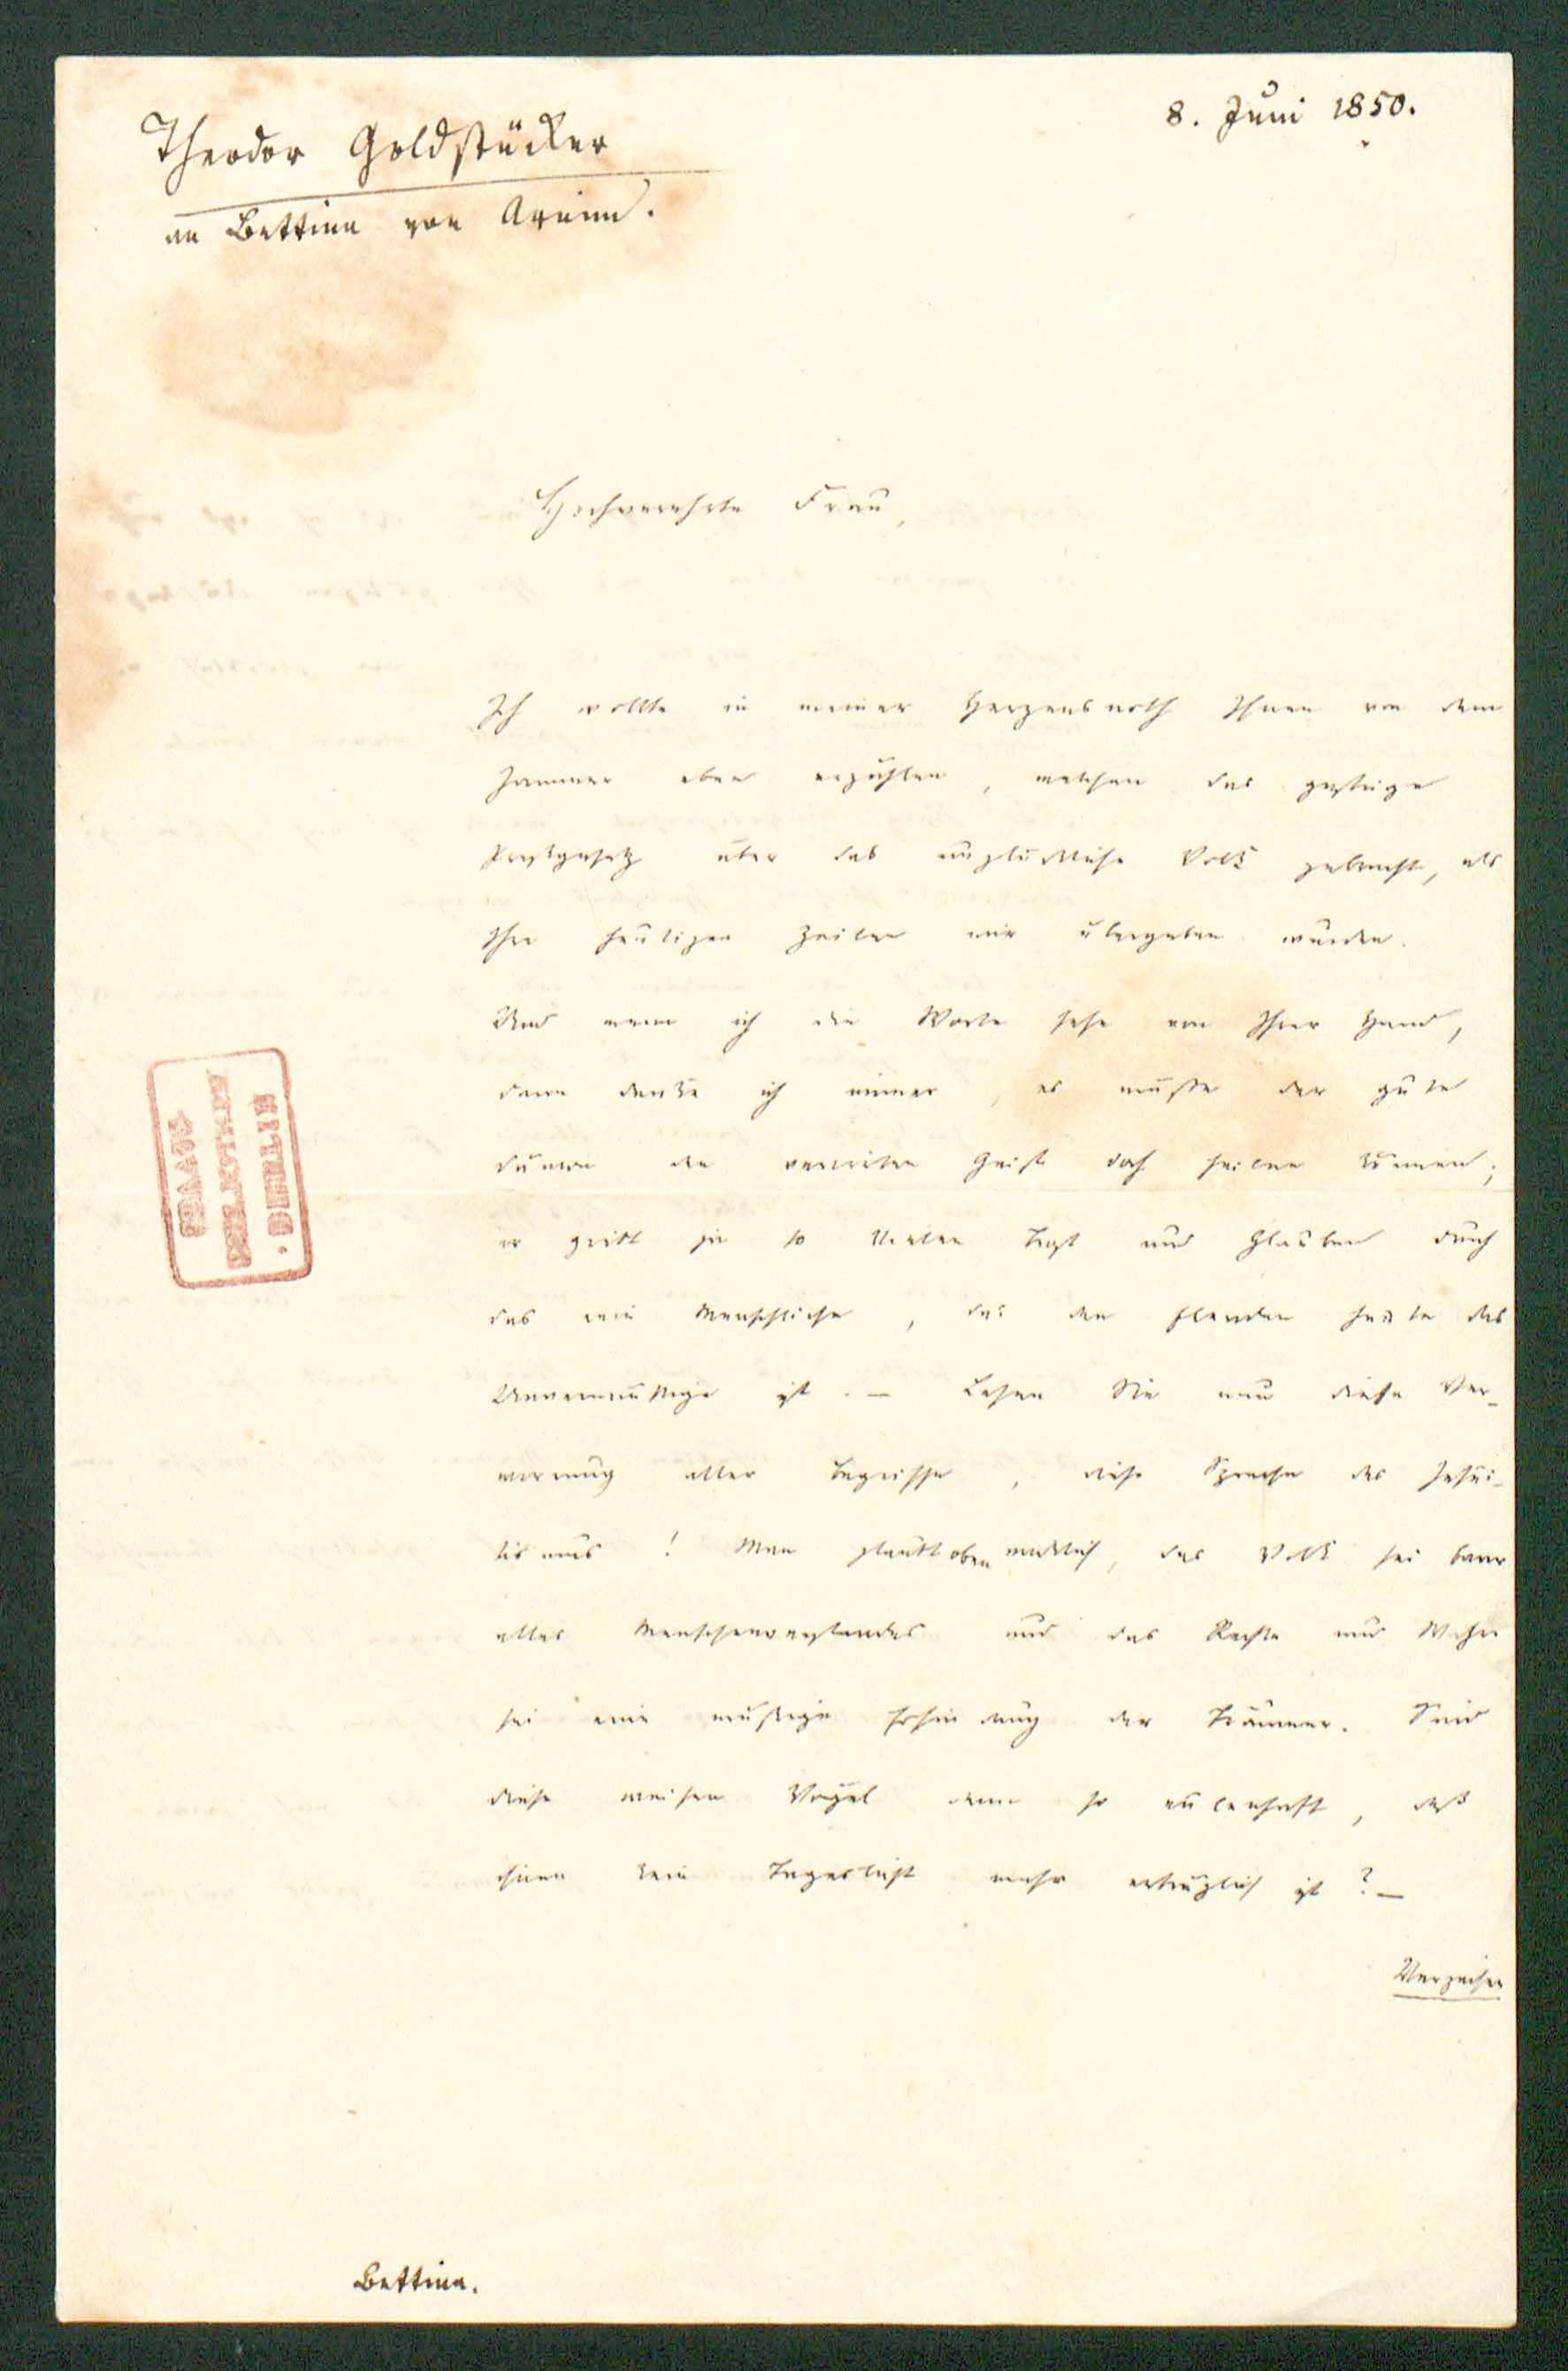 8. Juni 1850.
Theodor Goldstücker
an Bettina von Arnim.
Hochverehrte Frau,
Ich wollte in meiner Herzensnoth Ihnen von dem
Jammer eben erzählen, welchen das gestrige
Preßgesetz über das unglückliche Volk gebracht, als
Ihre heutigen Zeilen mir übergeben wurden.
Und wenn ich die Worte sehe von Ihrer Hand,
dann denke ich immer, es müßte der gute
Dämon den verwirrten Geist doch heilen können;
er giebt ja so Vielen Trost und Glauben durch
das rein Menschliche, das den Elenden heute das
Unvernünftige ist. — Lesen Sie nun diese Ver-
wirrung aller Begriffe, diese Sprache des Jesui-
tismus! Man glaubt oben wirklich, das Volk sei baar
alles Menschenverstandes und das Rechte und Wahre
sei eine müßige Erfindung der Träumer. Sind
diese weisen Vögel denn so eulenhaft, daß
ihnen kein Tageslicht mehr erträglich ist? —
Verzeihen
Bettina.